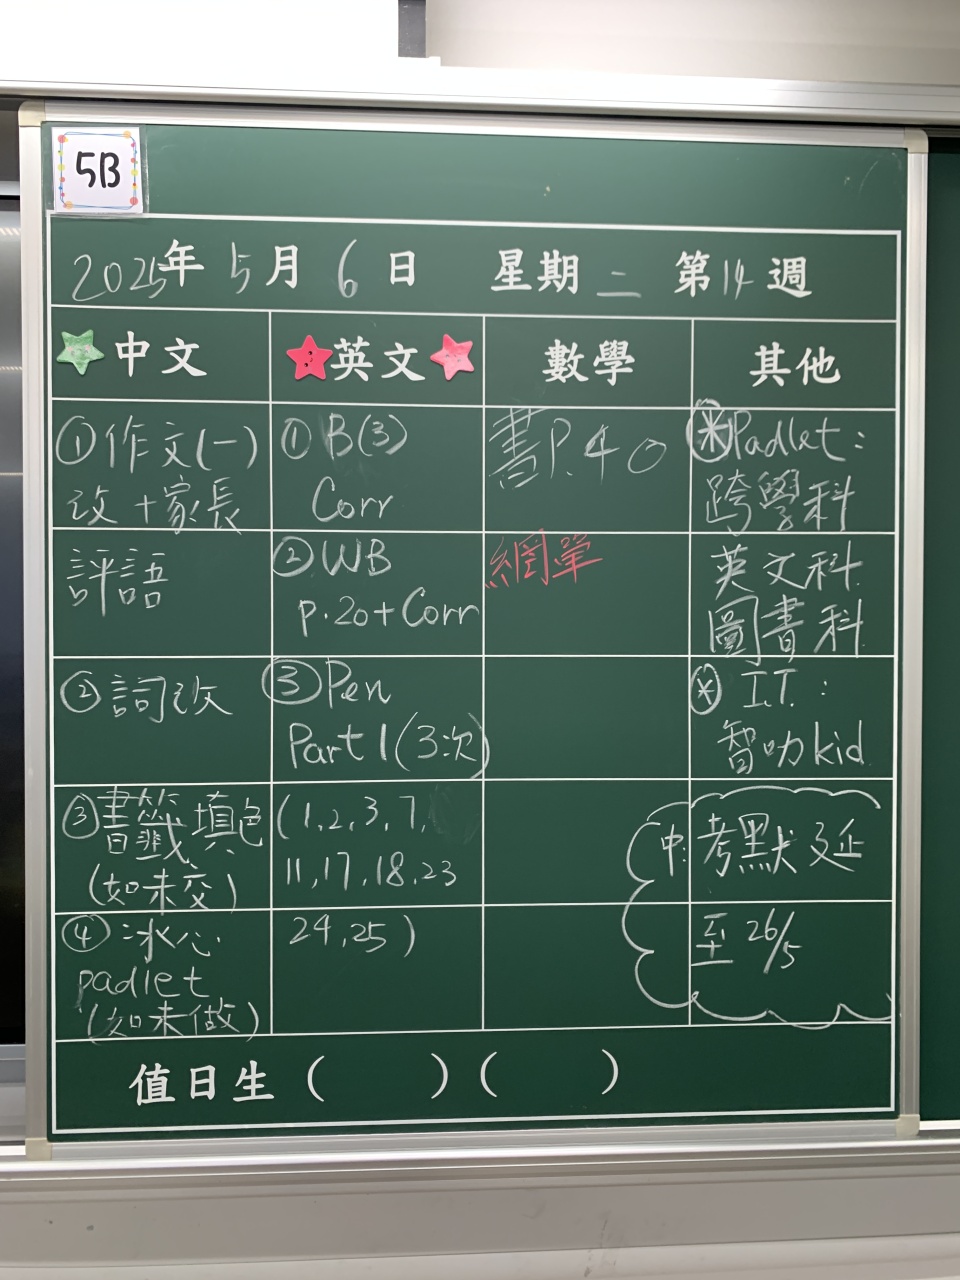 5B
2025年 5月 6日 星期二 第14週
中文
英文
數學
其他
①作文(一)
改+家長
評語
②詞改
③書籤填色
(如未交)
④冰心
padlet
(如未做)
①B(3)
Corr
②WB
p.20+Corr
③Pen
Part 1(3次)
(1,2,3,7,
11,17,18,23
24,25)
書P.40
網單
*Padlet:
跨學科
英文科
圖書科
* I.T.:
智叻kid
中: 考默延
至 26/5
值日生 ( ) ( )